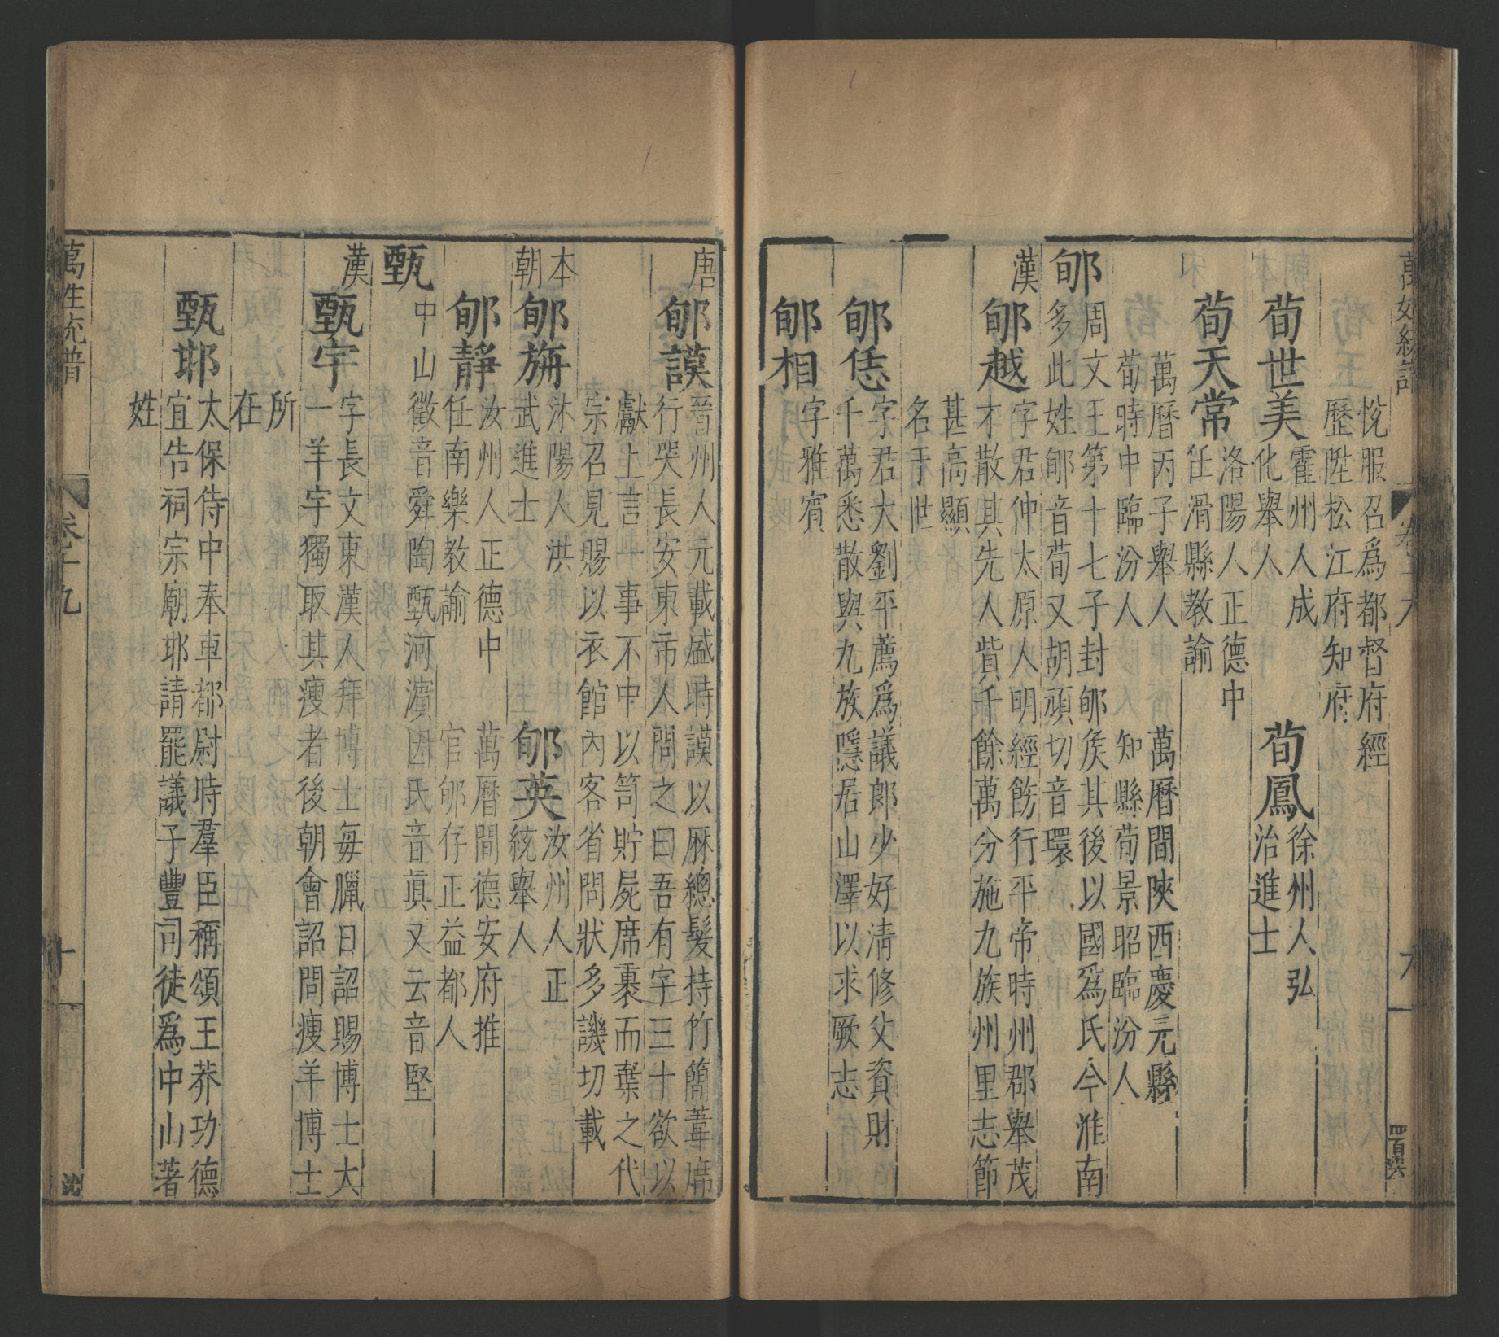 悅服召爲都督府經
歷陞松江府知府
荀世美霍州人成
化舉人
荀鳳徐州人弘
治進士
荀天常洛陽人正德中
任滑縣教諭
萬曆丙子舉人
萬曆間陝西慶元縣
荀時中臨汾人
知縣荀景昭臨汾人
郇周文王第十七子封郇侯其後以國爲氏今淮南
多此姓郇音荀又胡頑切音環
漢
郇越字君仲太原人明經飭行平帝時州郡舉茂
才散其先人貲千餘萬分施九族州里志節
甚高顯
名于世
郇恁字君大劉平薦爲議郎少好清修父資財
千萬悉散與九族隱居山澤以求厥志
郇相字雅賓
唐
郇謨晉州人元載盛時謨以麻總髮持竹簡葦席
行哭長安東市人問之曰吾有字三十欲以
獻上言 事不中以笥貯屍席裹而棄之代
宗召見賜以衣館內客省問狀多譏切載
本朝
郇旃沐陽人洪
武進士
郇英汝州人正
統舉人
郇靜汝州人正德中
任南樂教諭
萬曆間德安府推
官郇存正益都人
甄中山徵音舜陶甄河濵因氏音眞又云音堅
漢
甄宇字長文東漢人拜博士每臘日詔賜博士大
一羊宇獨取其瘦者後朝會詔問瘦羊博士
所
在
甄邯太保侍中奉車都尉時羣臣稱頌王莽功德
宜告祠宗廟邯請罷議子豐司徒爲中山著
姓
萬姓統譜
卷十九
十